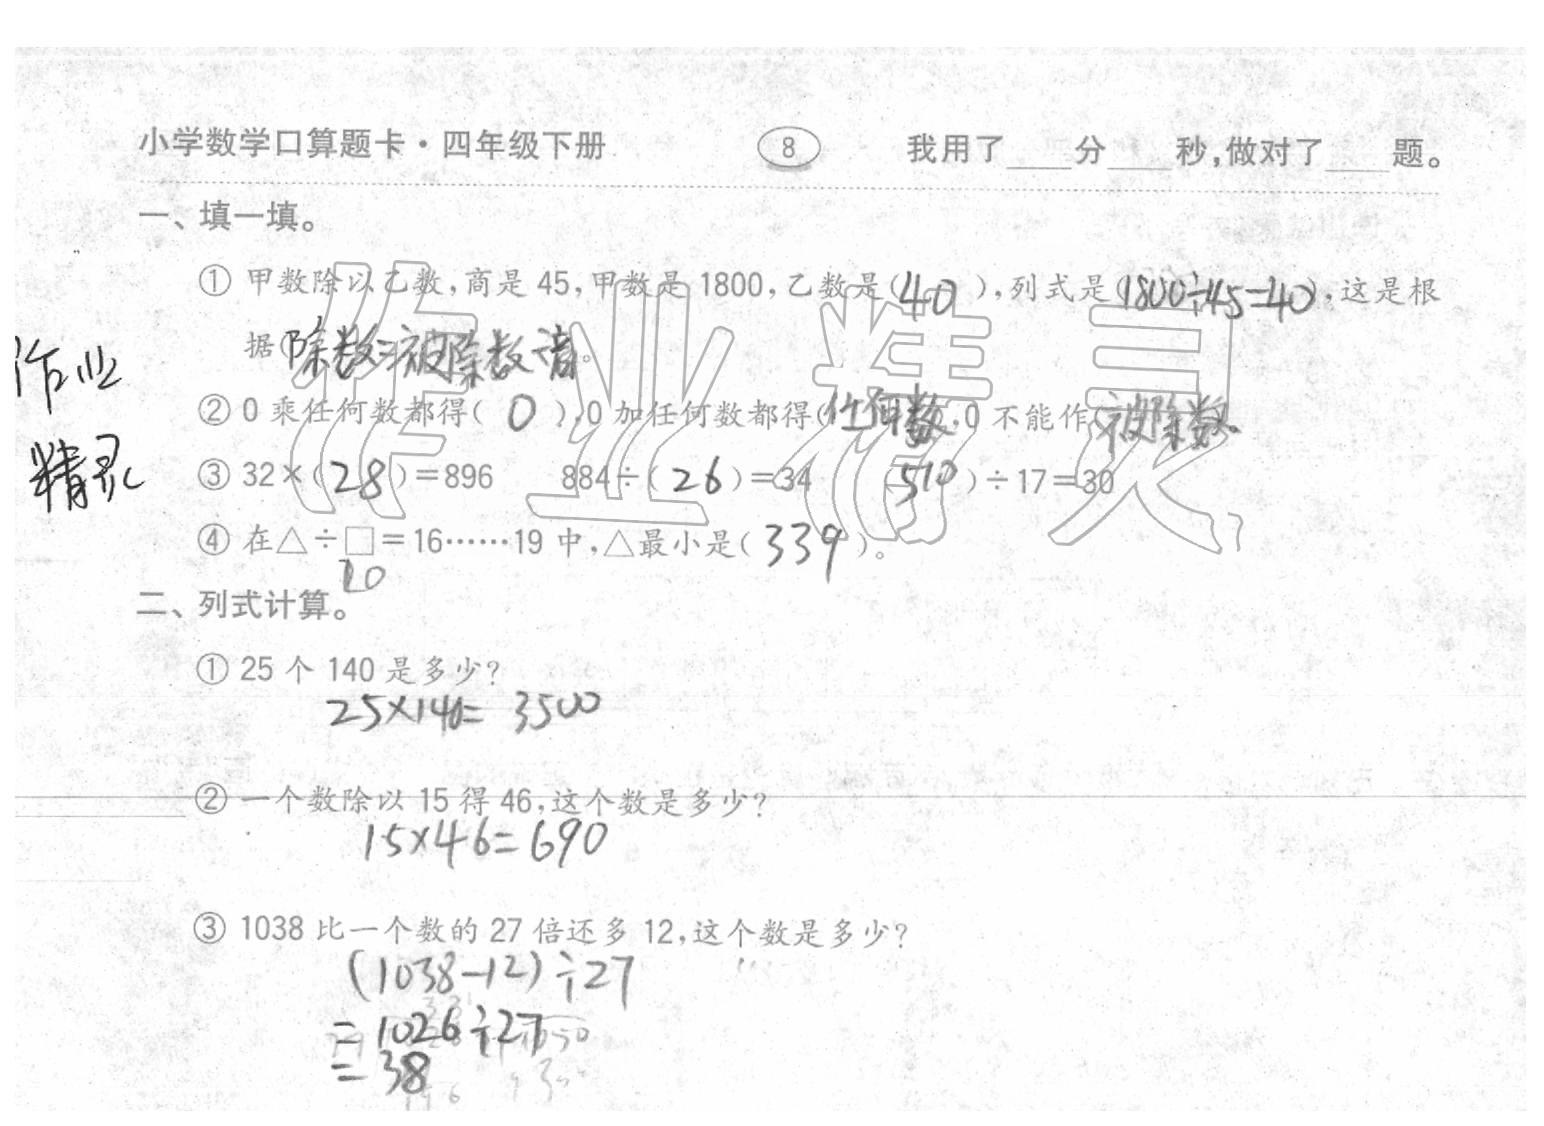 小学数学口算题卡·四年级下册 8 我用了____分____秒,做对了____题。
一、填一填。
① 甲数除以乙数,商是 45,甲数是 1800,乙数是(40),列式是(1800÷45=40),这是根
据(除数=被除数÷商)。
② 0 乘任何数都得(0),0 加任何数都得(任何数),0 不能作(被除数
作业
精灵
③ 32×(28)=896 884÷(26)=34 510)÷17=30
④ 在△÷□=16……19 中,△最小是(339)。
20
二、列式计算。
① 25 个 140 是多少?
25×140= 3500
② 一个数除以 15 得 46,这个数是多少?
15×46=690
③ 1038 比一个数的 27 倍还多 12,这个数是多少?
(1038-12)÷27
=1026÷27
=38
作业精灵